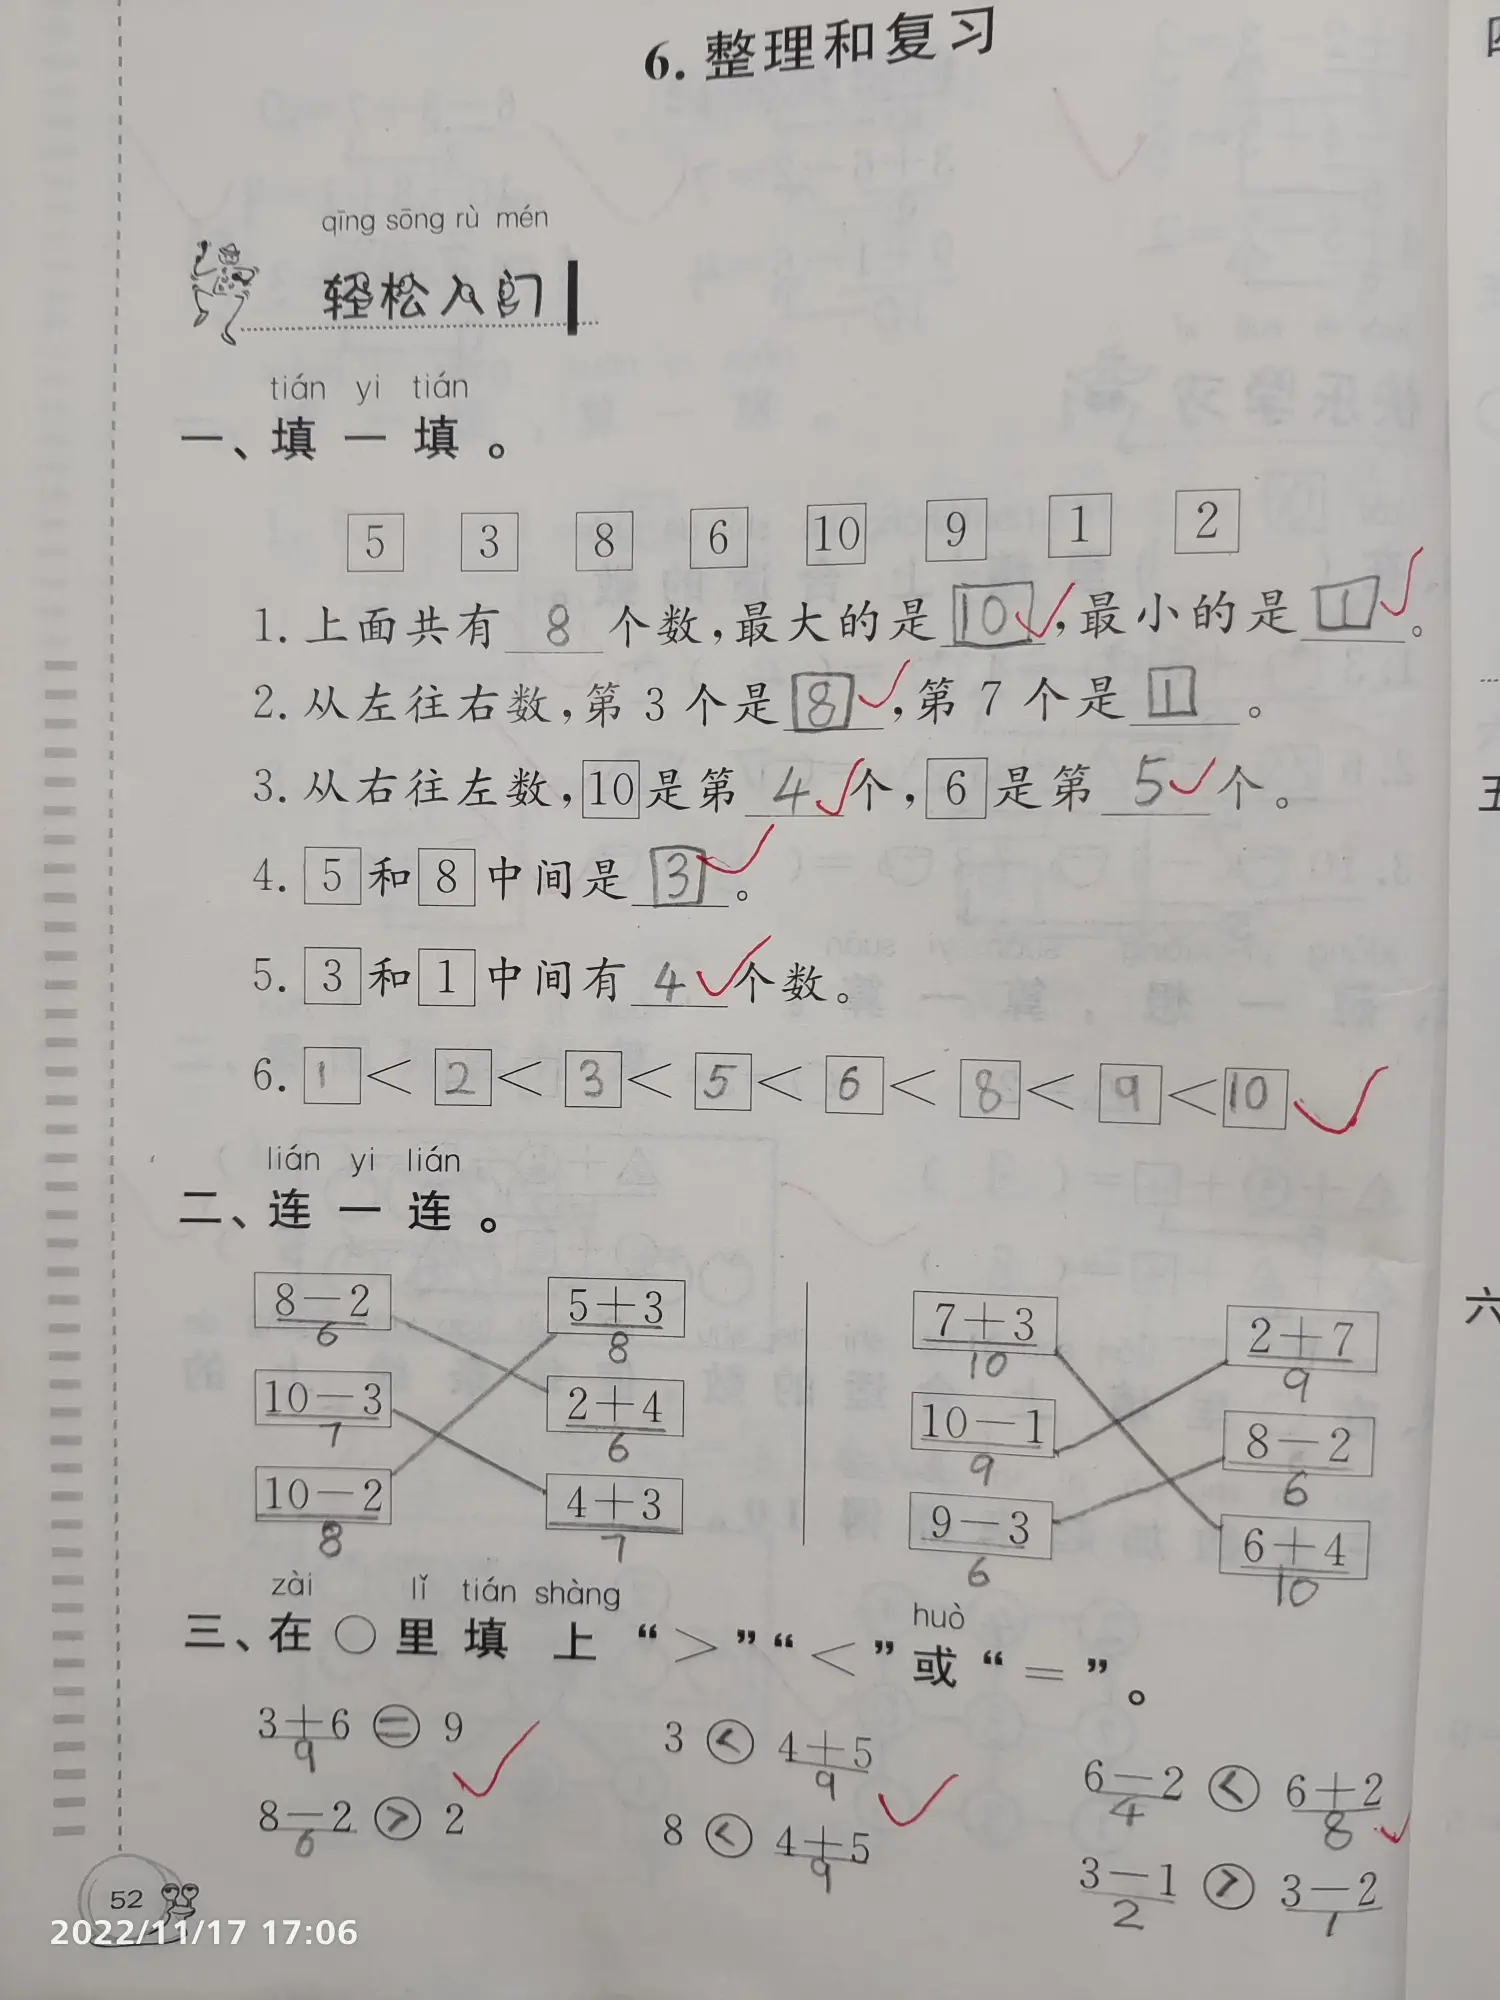 6. 整理和复习
qīng sōng rù mén
轻松入门
tián yi tián
一、填一填。
5 3 8 6 10 9 1 2
1. 上面共有 8 个数,最大的是 10,最小的是 1。
2. 从左往右数,第 3 个是 8,第 7 个是 1。
3. 从右往左数,10是第 4 个,6是第 5 个。
4. 5和8中间是 3。
5. 3和1中间有 4 个数。
6. 1<2<3<5<6<8<9<10
lián yi lián
二、连一连。
8-2 5+3 7+3 2+7
6 8 10 9
10-3 2+4 10-1 8-2
7 6 9 6
10-2 4+3 9-3 6+4
8 7 6 10
zài lǐ tián shàng huò
三、在○里填上“>”“<”或“=”。
3+6 = 9 3 < 4+5 6-2 < 6+2
9 9 4 8
8-2 > 2 8 < 4+5 3-1 > 3-2
6 9 2 1
52
2022/11/17 17:06
四
五
六